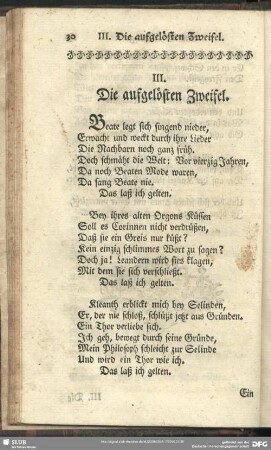 30 III. Die aufgelösten Zweifel.
III.
Die aufgelösten Zweifel.
Beate legt sich singend nieder,
Erwacht und weckt durch ihre Lieder
Die Nachbarn noch ganz früh.
Doch schmäht die Welt: Vor vierzig Jahren,
Da noch Beaten Mode waren,
Da sang Beate nie.
Das laß ich gelten.
Bey ihres alten Orgons Küssen
Soll es Corinnen nicht verdrüßen,
Daß sie ein Greis nur küßt?
Kein einzig schlimmes Wort zu sagen?
Doch ja! Leandern wird sies klagen,
Mit dem sie sich verschließt.
Das laß ich gelten.
Kleanth erblickt mich bey Selinden,
Er, der nie schloß, schlüzt jetzt aus Gründen.
Ein Thor verliebe sich.
Ich geh, bewegt durch seine Gründe,
Mein Philosoph schleicht zur Selinde
Und wird ein Thor wie ich.
Das laß ich gelten.
Ein
SLUB
DFG